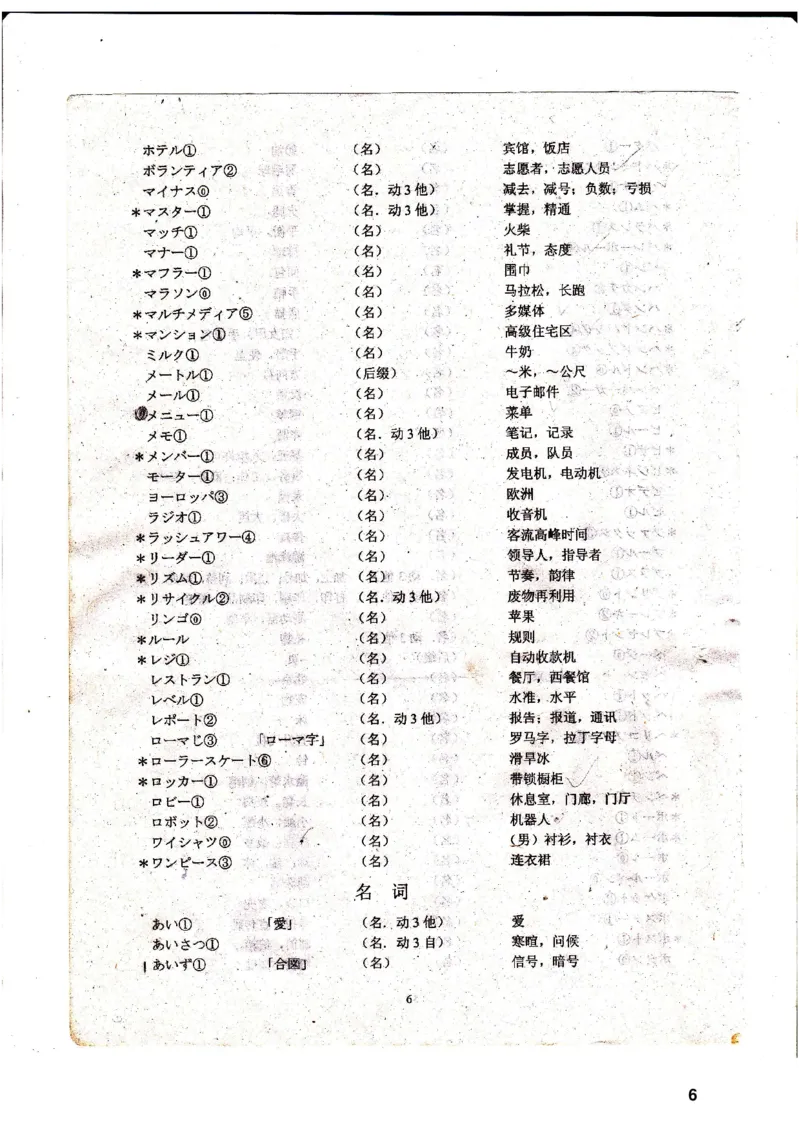 ホテル① (名) 宾馆，饭店
ボランティア② (名) 志愿者，志愿人员
マイナス⓪ (名．动3他) 减去，减号；负数；亏损
*マスター① (名．动3他) 掌握，精通
マッチ① (名) 火柴
マナー① (名) 礼节，态度
*マフラー① (名) 围巾
マラソン⓪ (名) 马拉松，长跑
*マルチメディア⑤ (名) 多媒体
*マンション① (名) 高级住宅区
ミルク① (名) 牛奶
メートル① (后缀) ～米，～公尺
メール① (名) 电子邮件
メニュー① (名) 菜单
メモ① (名．动3他) 笔记，记录
*メンバー① (名) 成员，队员
モーター① (名) 发电机，电动机
ヨーロッパ③ (名) 欧洲
ラジオ① (名) 收音机
*ラッシュアワー④ (名) 客流高峰时间
*リーダー① (名) 领导人，指导者
*リズム① (名) 节奏，韵律
*リサイクル② (名．动3他) 废物再利用
リンゴ⓪ (名) 苹果
*ルール (名) 规则
*レジ① (名) 自动收款机
レストラン① (名) 餐厅，西餐馆
レベル① (名) 水准，水平
レポート② (名．动3他) 报告；报道，通讯
ローマじ③ 「ローマ字」 (名) 罗马字，拉丁字母
*ローラースケート⑥ (名) 滑旱冰
*ロッカー① (名) 带锁橱柜
ロビー① (名) 休息室，门廊，门厅
ロボット② (名) 机器人
ワイシャツ⓪ (名) (男）衬衫，衬衣
*ワンピース③ (名) 连衣裙
名 词
あい① 「愛」 (名．动3他) 爱
あいさつ① (名．动3自) 寒暄，问候
あいず① 「合図」 (名) 信号，暗号
6
6